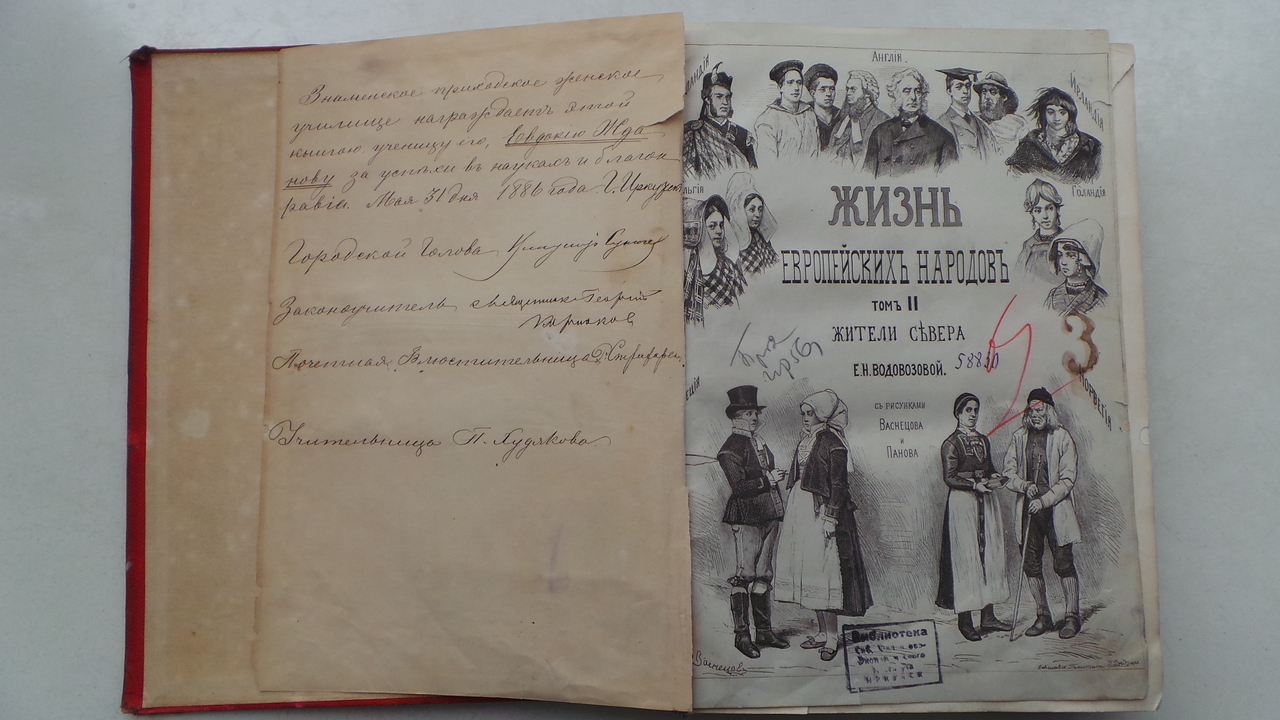 Знаменское приходское женское
училище награждаетъ этой
книгою ученицу его, Евдокію Жда
нову за успѣхи въ наукахъ и благон
равіи. Мая 31 дня 1886 года Г. Иркутскъ
Городской Голова
Законоучитель священникъ Георгій
Почетная Блюстительница
Учительница П. Худякова
Англія.
Ирландія
Голандія
ЖИЗНЬ
ЕВРОПЕЙСКИХЪ НАРОДОВЪ
ТОМЪ II
ЖИТЕЛИ СѢВЕРА
Е.Н. ВОДОВОЗОВОЙ.
58850
3
СЪ РИСУНКАМИ
ВАСНЕЦОВА
И
ПАНОВА
НОРВЕГІЯ
Васнецовъ
Библиотека